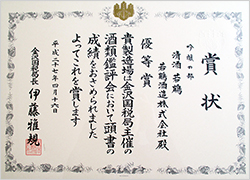 賞状
吟醸の部
清酒 若鶴
若鶴酒造株式会社殿
優等賞
貴製造場は金沢国税局主催の
酒類鑑評会において頭書の
成績をおさめられました
よってこれを賞します
平成二十七年四月十六日
金沢国税局長 伊藤雅規